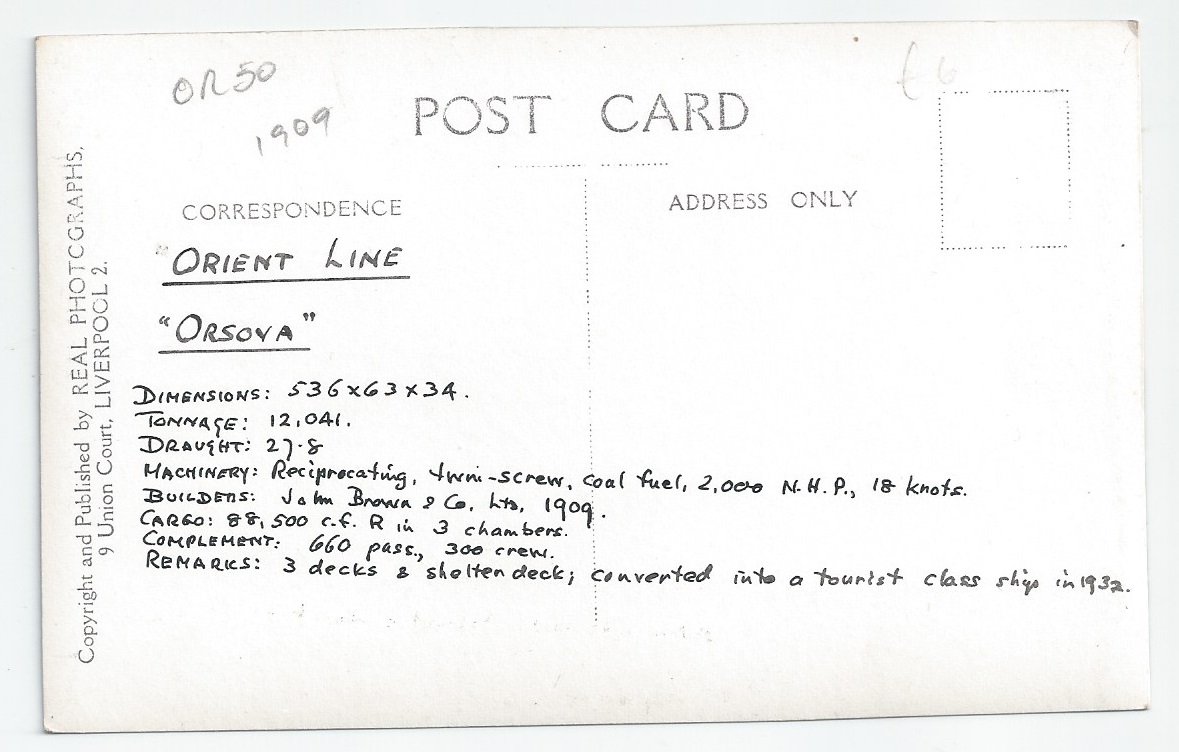 OR50
1909
£6
POST CARD
CORRESPONDENCE
ADDRESS ONLY
"ORIENT LINE
"ORSOVA"
DIMENSIONS: 536x63x34.
TONNAGE: 12,041.
DRAUGHT: 27.8
MACHINERY: Reciprocating, twin-screw, coal fuel, 2,000 N.H.P., 18 knots.
BUILDERS: John Brown & Co. Ltd, 1909.
CARGO: 88,500 c.f. R in 3 chambers.
COMPLEMENT: 660 pass., 300 crew.
REMARKS: 3 decks & shelter deck; converted into a tourist class ship in 1932.
Copyright and Published by REAL PHOTOGRAPHS,
9 Union Court, LIVERPOOL 2.